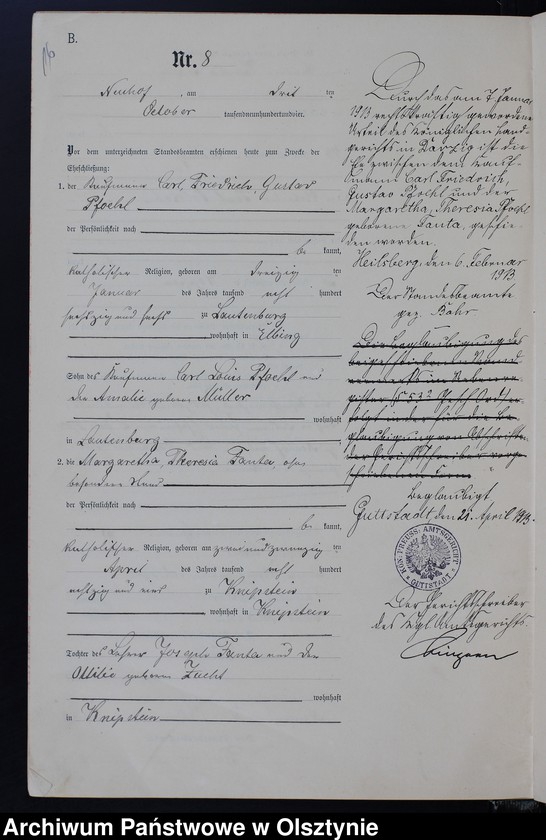 B.
Nr. 8
Neuhof, am Drei ten
October tausendneunhundertundvier.
Vor dem unterzeichneten Standesbeamten erschienen heute zum Zwecke der
Eheschließung:
1. der Kaufmann Carl, Friedrich, Gustav
Pfoehl
der Persönlichkeit nach
be kannt,
katholischer Religion, geboren am dreizig ten
Januar des Jahres tausend acht hundert
sechszig und sechs zu Lautenburg
wohnhaft in Elbing
Sohn des Kaufmann Carl Louis Pfoehl und
der Amalie geborene Müller
wohnhaft
in Lautenburg
2. die Margaretha, Theresia Fanta, ohne
besonderen Stand
der Persönlichkeit nach
be kannt,
katholischer Religion, geboren am zweiundzwanzig ten
April des Jahres tausend acht hundert
achtzig und vier zu Knipstein
wohnhaft in Knipstein
Tochter des Lehrer Joseph Fanta und der
Ottilie geborene
wohnhaft
in Knipstein
Durch das am 7. Januar
1913 rechtskräftig gewordene
Urteil des Königlichen Land-
gerichts in Danzig ist die
Ehe zwischen dem Kauf-
mann Carl Friedrich,
Gustav Pfoehl und der
Margaretha, Theresia Pfoehl
geborene Fanta, geschie-
den worden.
Heilsberg, den 6. Februar
1913
Der Standesbeamte
gez. Bähr
Die Beglaubigung des
beigeschriebenen
Beglaubigt
Guttstadt, den 21. April 1913.
KÖN. PREUSS. AMTSGERICHT
GUTTSTADT
Der Gerichtsschreiber
des Kgl. Amtsgerichts
Archiwum Państwowe w Olsztynie